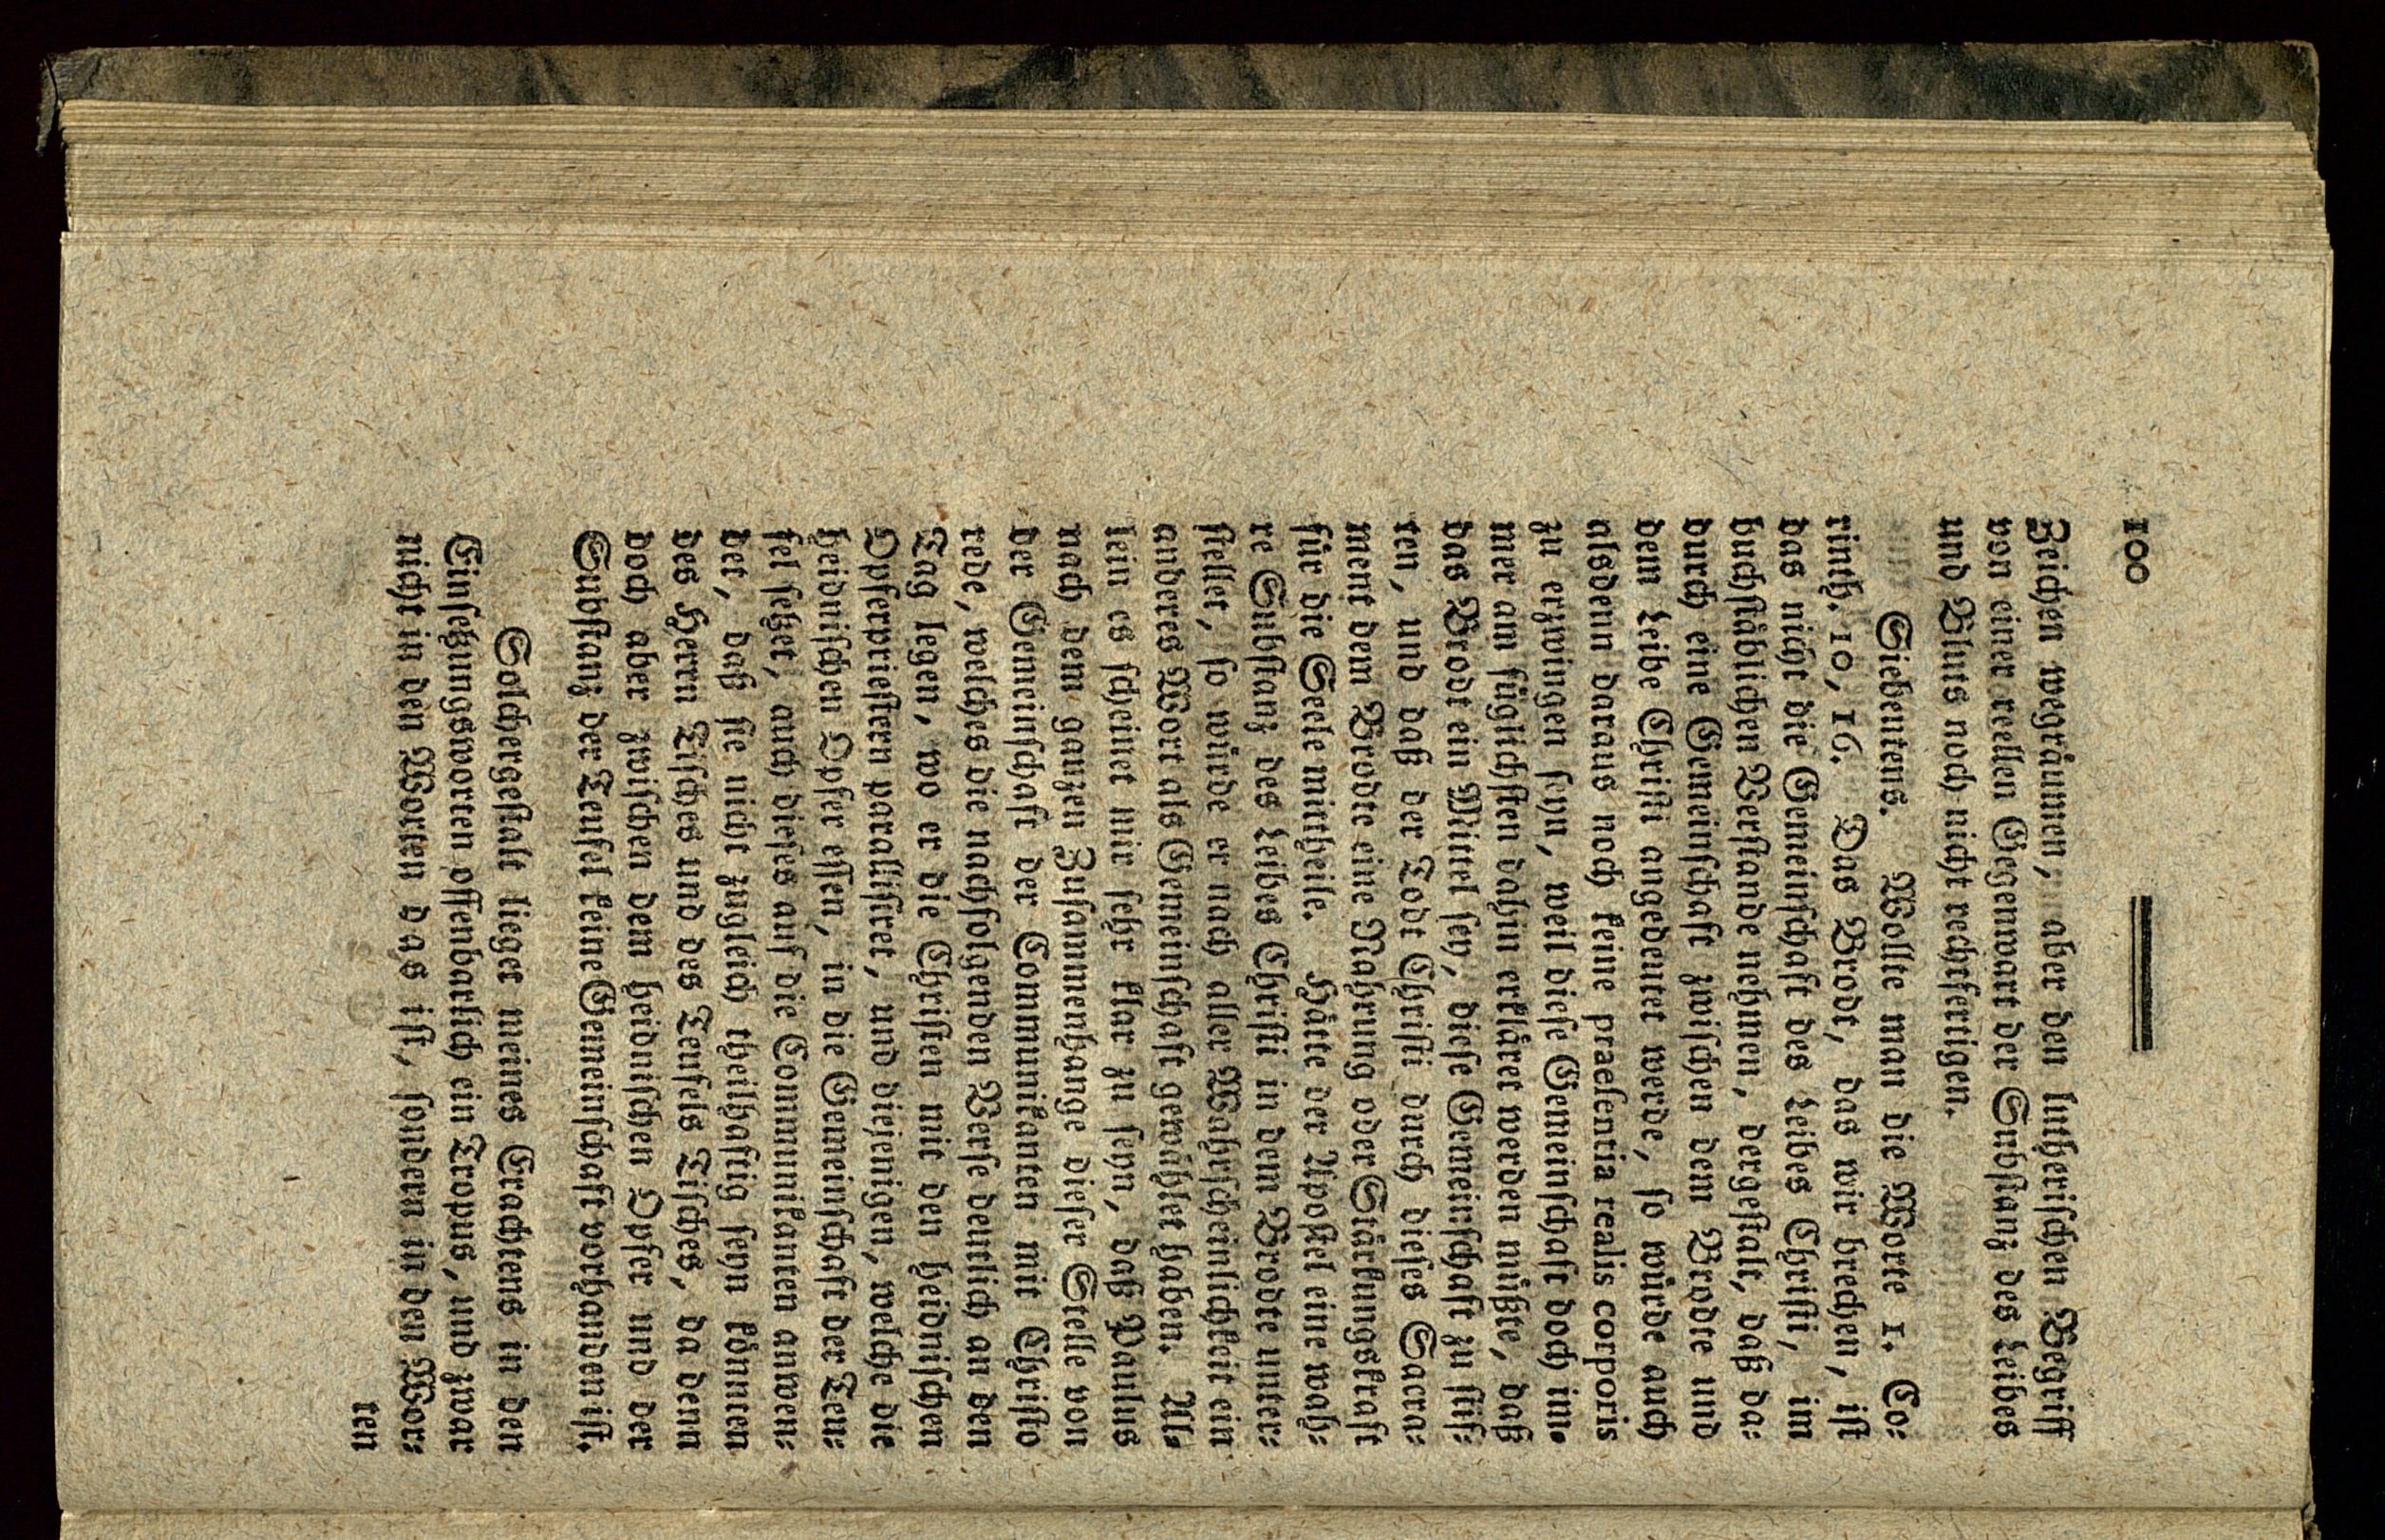 100
Zeichen wegräumen, aber den lutherischen Begriff
von einer reellen Gegenwart der Substanz des Leibes
und Bluts noch nicht rechtfertigen.
Siebentens. Wollte man die Worte 1. Co⸗
rinth. 10, 16. Das Brodt, das wir brechen, ist
das nicht die Gemeinschaft des Leibes Christi, im
buchstäblichen Verstande nehmen, dergestalt, daß da⸗
durch eine Gemeinschaft zwischen dem Brodte und
dem Leibe Christi angedeutet werde, so würde auch
alsdenn daraus noch keine praesentia realis corporis
zu erzwingen seyn, weil diese Gemeinschaft doch im⸗
mer am füglichsten dahin erkläret werden müßte, daß
das Brodt ein Mittel sey, diese Gemeinschaft zu stif⸗
ten, und daß der Todt Christi durch dieses Sacra⸗
ment dem Brodte eine Nahrung oder Stärkungskraft
für die Seele mittheile. Hätte der Apostel eine wah⸗
re Substanz des Leibes Christi in dem Brodte unter⸗
stellet, so würde er nach aller Wahrscheinlichkeit ein
anderes Wort als Gemeinschaft gewählet haben. Al⸗
lein es scheinet mir sehr klar zu seyn, daß Paulus
nach dem ganzen Zusammenhange dieser Stelle von
der Gemeinschaft der Communikanten mit Christo
rede, welches die nachfolgenden Verse deutlich an den
Tag legen, wo er die Christen mit den heidnischen
Opferpriestern parallisiret, und diejenigen, welche die
heidnischen Opfer essen, in die Gemeinschaft der Teu⸗
fel setzet, auch dieses auf die Communikanten anwen⸗
det, daß sie nicht zugleich theilhaftig seyn könnten
des Herrn Tisches und des Teufels Tisches, da denn
doch aber zwischen dem heidnischen Opfer und der
Substanz der Teufel keine Gemeinschaft vorhanden ist.
Solchergestalt lieget meines Erachtens in den
Einsetzungsworten offenbarlich ein Tropus, und zwar
nicht in den Worten das ist, sondern in den Wor⸗
ten